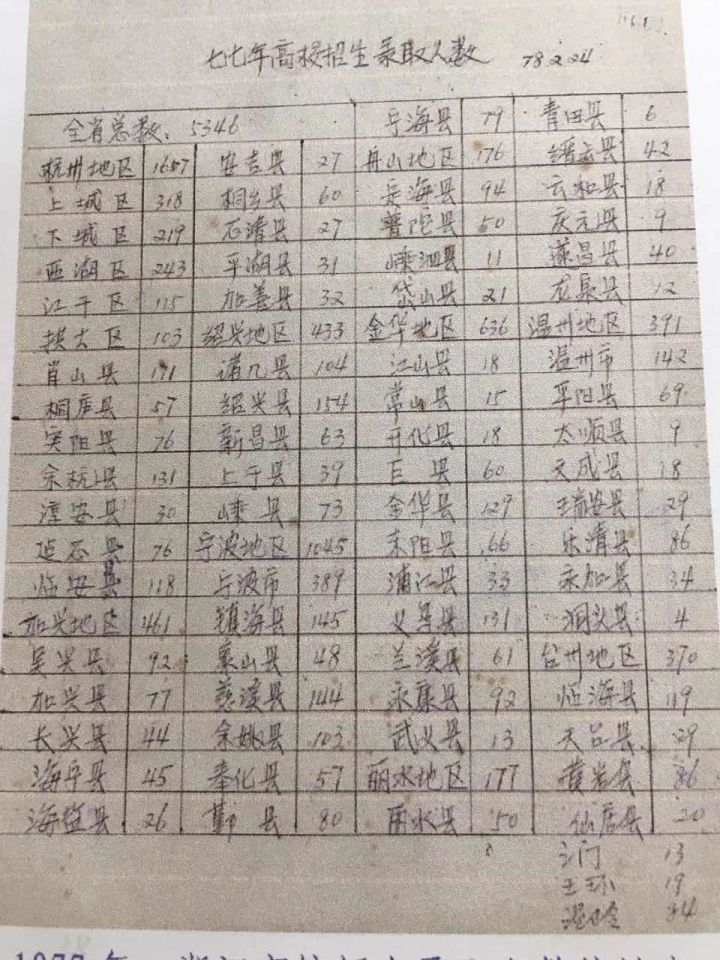 七七年高校招生录取人数 78.2.24
全省总数：5346 宁海县 79 青田县 6
杭州地区 1657 安吉县 27 舟山地区 176 缙云县 42
上城区 318 桐乡县 60 定海县 94 云和县 18
下城区 219 德清县 27 普陀县 50 庆元县 9
西湖区 243 平湖县 31 嵊泗县 11 遂昌县 40
江干区 115 加善县 32 岱山县 21 龙泉县 12
拱大区 103 绍兴地区 433 金华地区 636 温州地区 391
肖山县 171 诸几县 104 江山县 18 温州市 142
桐庐县 57 绍兴县 154 常山县 15 平阳县 69
富阳县 76 新昌县 63 开化县 18 太顺县 9
余杭县 131 上于县 39 巨县 60 文成县 18
淳安县 30 嵊县 73 金华县 129 瑞安县 29
建德县 76 宁波地区 1045 东阳县 66 乐清县 86
临安县 118 宁波市 389 浦江县 33 永加县 34
加兴地区 461 镇海县 145 义乌县 131 洞头县 4
吴兴县 92 象山县 48 兰溪县 61 台州地区 370
加兴县 77 慈溪县 144 永康县 92 临海县 119
长兴县 44 余姚县 103 武义县 13 天台县 29
海宁县 45 奉化县 57 丽水地区 177 黄岩县 86
海盐县 26 鄞县 80 丽水县 50 仙居县 20
三门 13
玉环 19
温岭 84